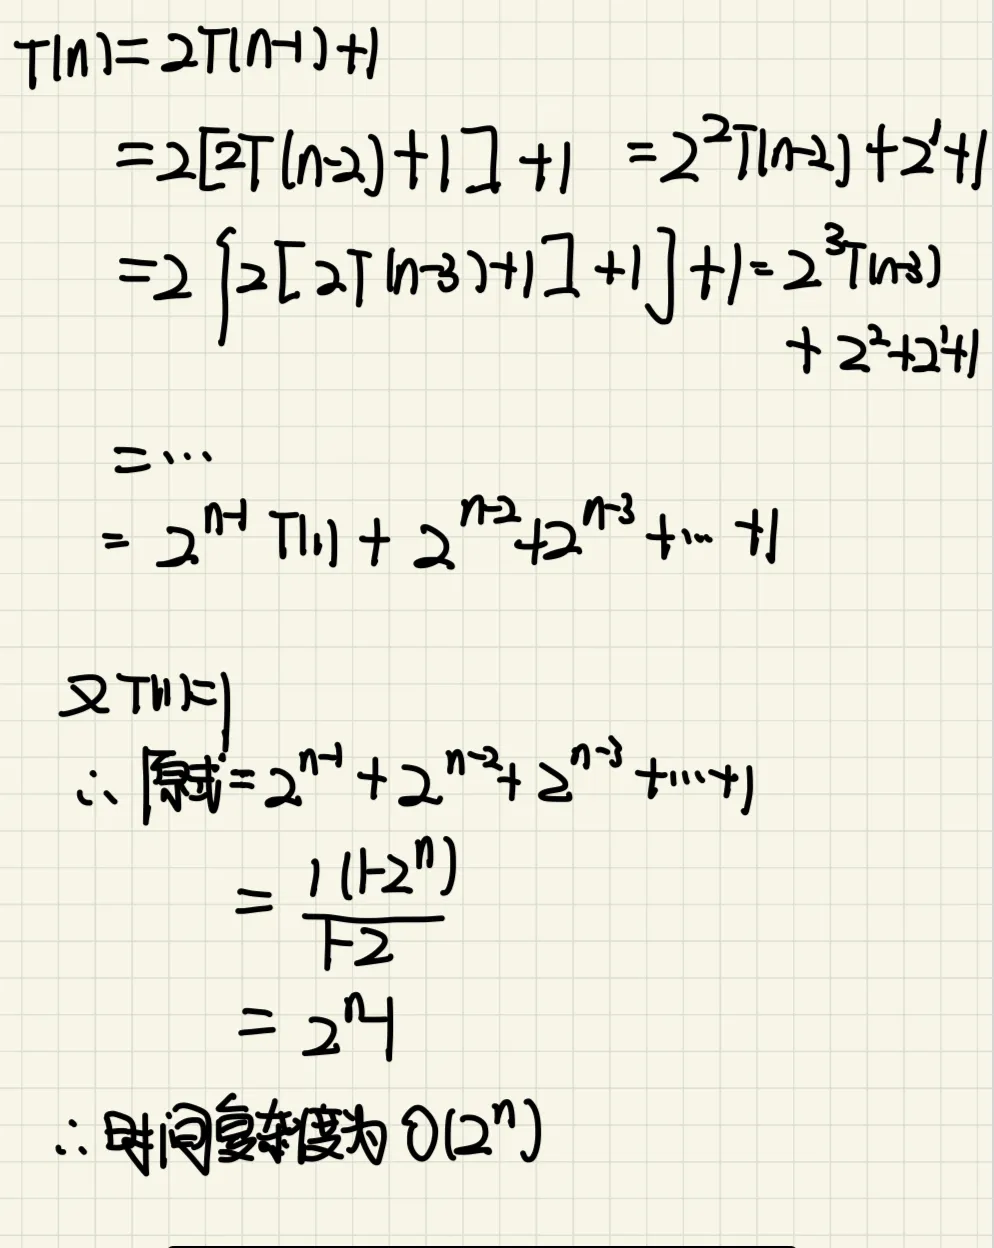 T(n)=2T(n-1)+1
=2[2T(n-2)+1]+1 =2²T(n-2)+2¹+1
=2{2[2T(n-3)+1]+1}+1=2³T(n-3)
+2²+2¹+1
=…
=2ⁿ⁻¹T(1)+2ⁿ⁻²+2ⁿ⁻³+…+1
又T(1)=1
∴原式=2ⁿ⁻¹+2ⁿ⁻²+2ⁿ⁻³+…+1
=1(1-2ⁿ)/1-2
=2ⁿ-1
∴时间复杂度为O(2ⁿ)